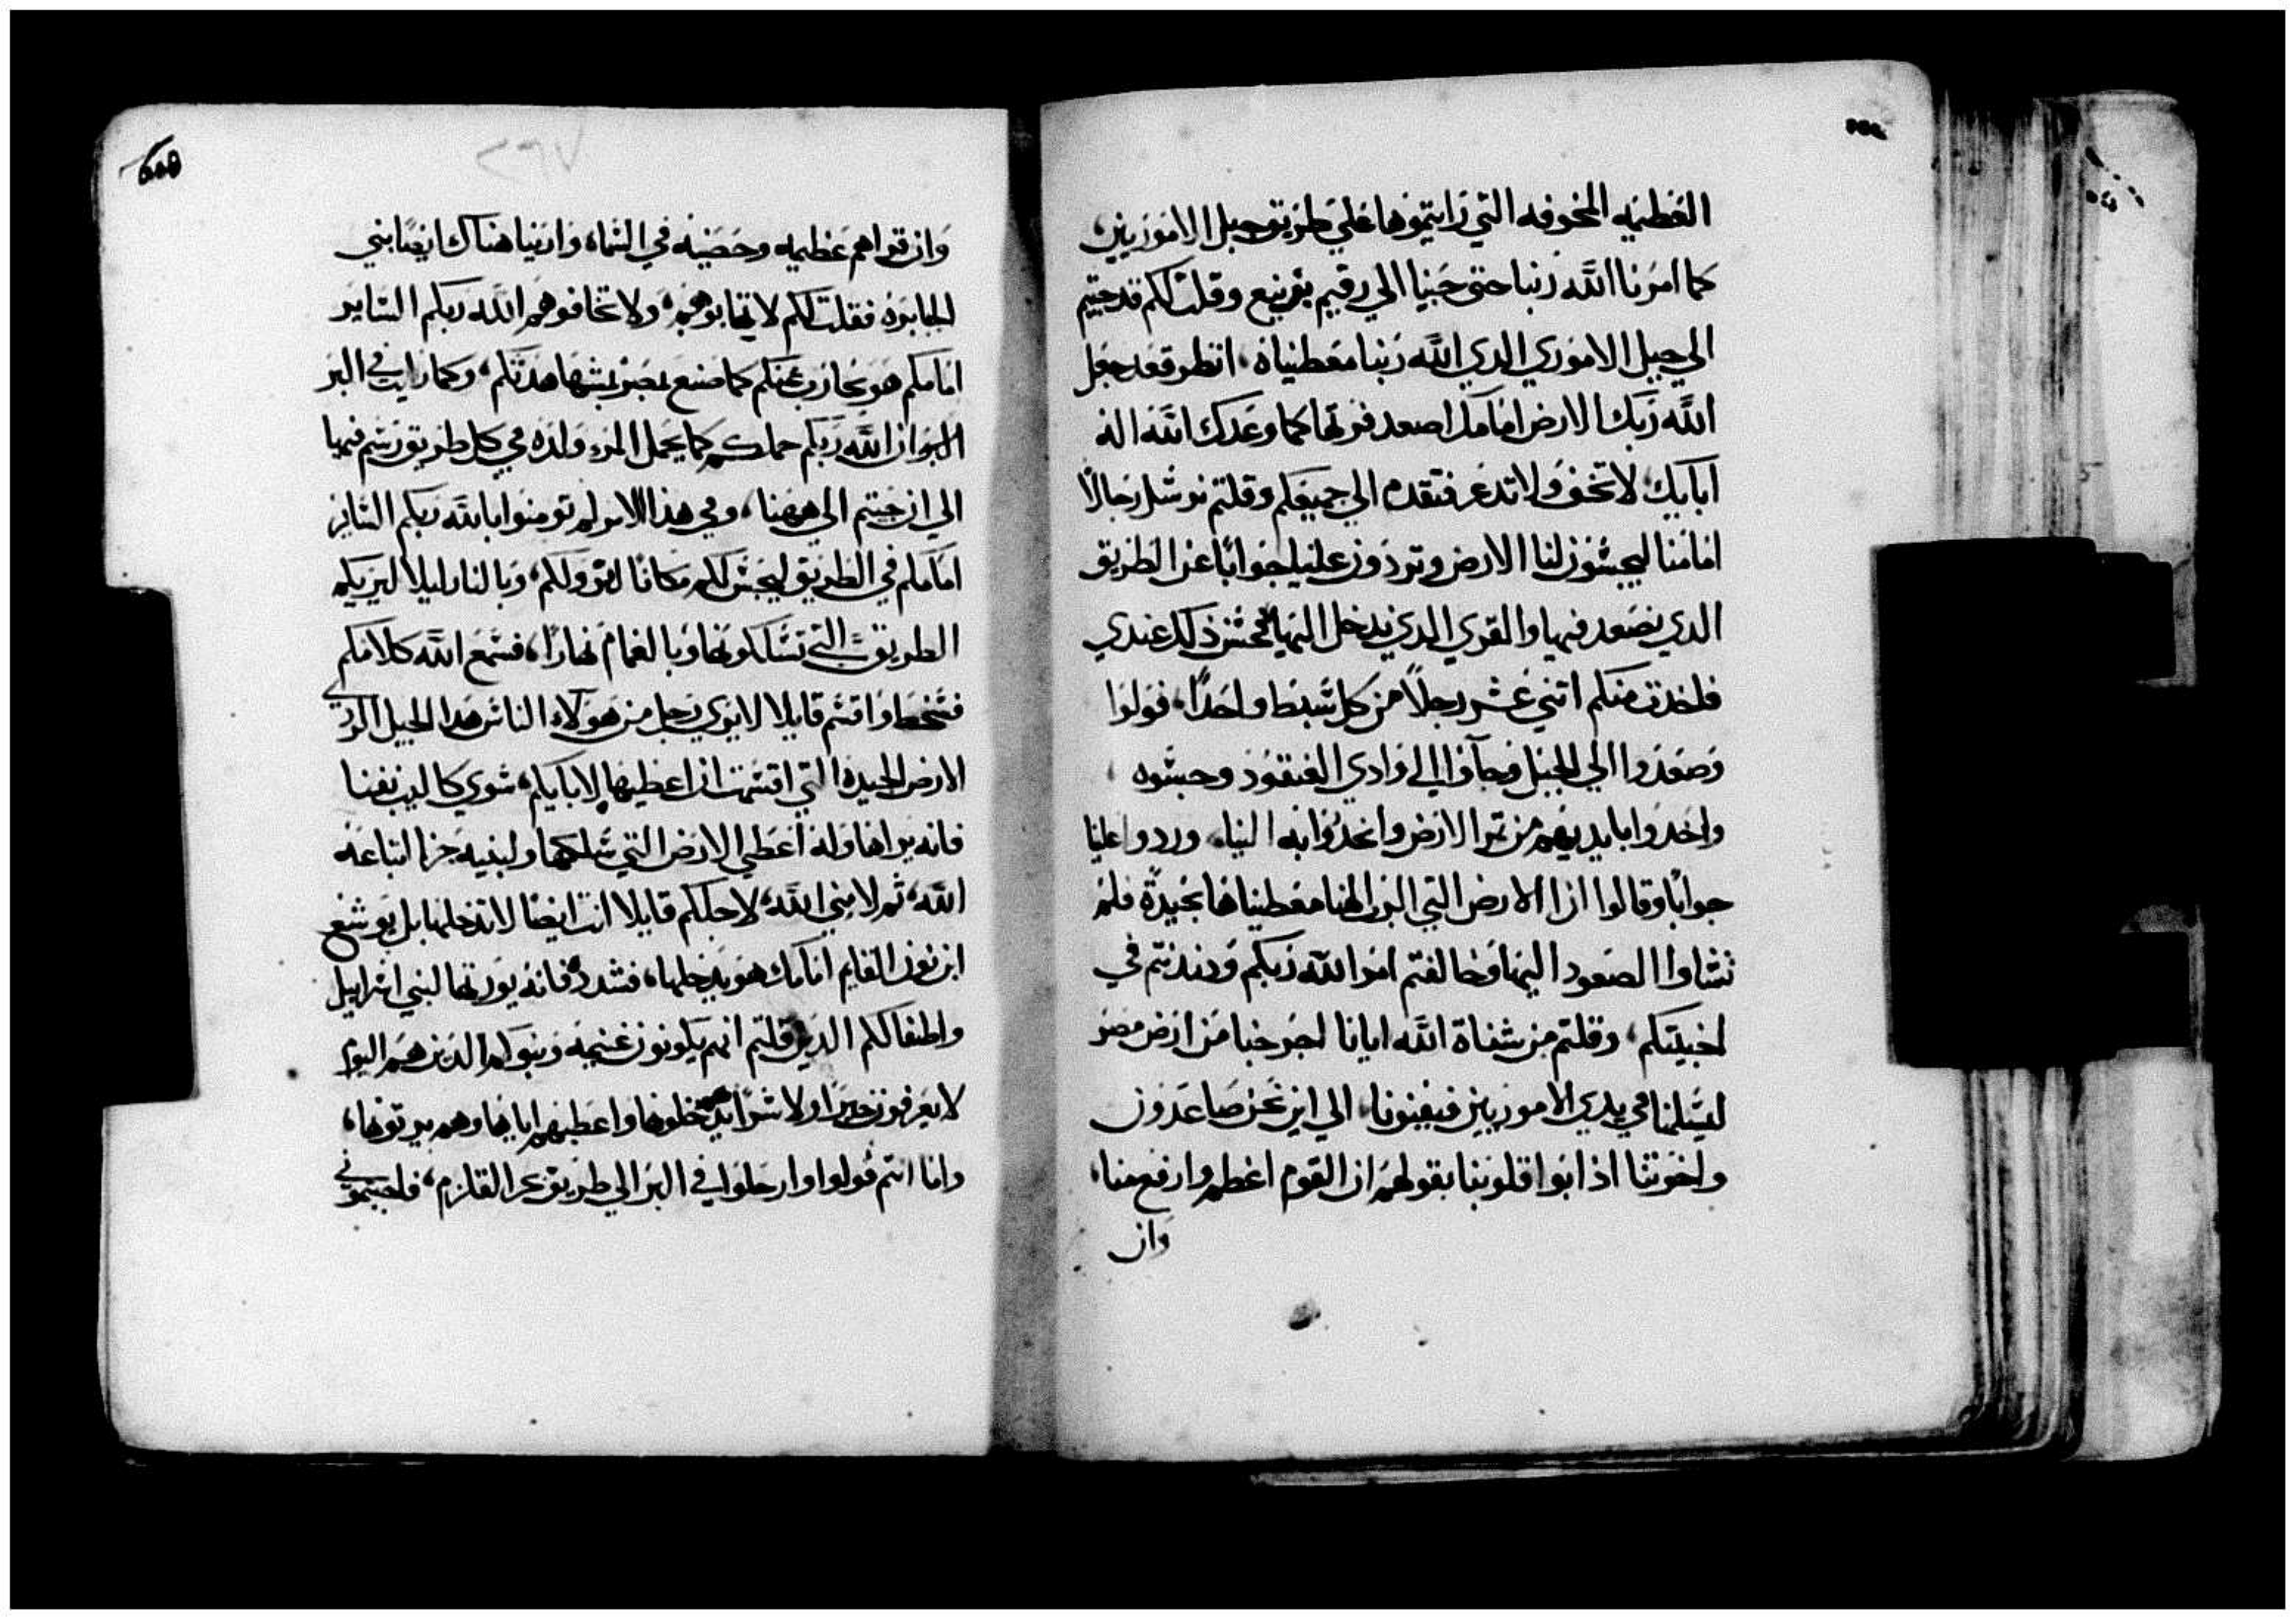 العظيمه المخوفه التي رايتموها علي طريق جبل الاموريين،
كما امرنا اللّه ربنا حتى جينا الي رقيم برنيع وقلت لكم قد جيتم
الي جبل الاموري الدي اللّه ربنا معطيناه. انظر فقد جعل
اللّه ربك الارض امامك اصعد فرتها كما وعدك اللّه اله
ابايك، لا تخف ولا تدعر فتقدم الي جميعكم وقلتم نرسل رجالاً
امامنا ليجسّون لنا الارض وتردون علينا جواباً عن الطريق
الدي نصعد فيها والقري الدي ندخل اليها فحسن ذلك عندي
فاخدت منكم اتني عشر رجلاً من كل سبط واحداً، فولوا
وصعدوا الي الجبل وجآوا الي وادي العنقود وجسّوه
واخدوا بايديهم من تمر الارض وانحدروا به الينا، وردوا علينا
جواباً وقالوا ان الارض التي الرب الهنا معطيناها بجيدة فلم
تشاوا الصعود اليها وخالفتم امر اللّه ربكم ودندنتم في
اخبيتكم، وقلتم من شناة اللّه ايانا اخرجنا من ارض مصر
ليسلمنا في يدي الاموريين فيفنونا، الي اين نحن صاعدون
واخوتنا اذابوا قلوبنا بقولهم ان القوم اعظم وارفع منا،
وان
وان قراهم عظيمه وحصينه في السّماء وراينا هناك ايضاً بني
الجابره فقلت لكم لا تهابوهم، ولا تخافوهم اللّه ربكم السّاير
امامكم هو يحارب عنكم كما صنع بمصر بمشهاهدتكم، وكما رايت في البر
البر ان اللّه ربكم حملكم كما يحمل المرء ولده في كل طريق سرتم فيها
الي ان جيتم الي ههنا، وفي هذا الامر لم تومنوا باللّه ربكم السّاير
امامكم في الطريق ليجسّ لكم مكاناً لنزولكم، وبالنار ليلاً ليريكم
الطريق التي تسّلكونها وبالغمام نهاراً، فسّمع اللّه كلامكم
فسّخط واقسّم قايلا لا يري رجل من هولاء الناس هدا الجيل الردي
الارض الجيده التي اقسّمت ان اعطيها لابايكم، سوي كالب بن يفنا
فانه يراها وله اعطي الارض التي سّلكها ولبنيه جزا اتباعه
اللّه، ثم لامني اللّه، لاجلكم قايلا انت ايضاً لا تدخلها بل يوشع
ابن نون القايم امامك هو يدخلها، فشدده فانه يورتها لبني اسراييل
واطفالكم الدين قلتم انهم يكونون غنيمه وبنوكم الدين هم اليوم
لا يعرفون خيراً ولا شراً هم يدخلونها واعطيهم اياها وهم يرتونها،
واما انتم فولوا وارحلوا في البر الي طريق بحر القلزم، فاجبتموني